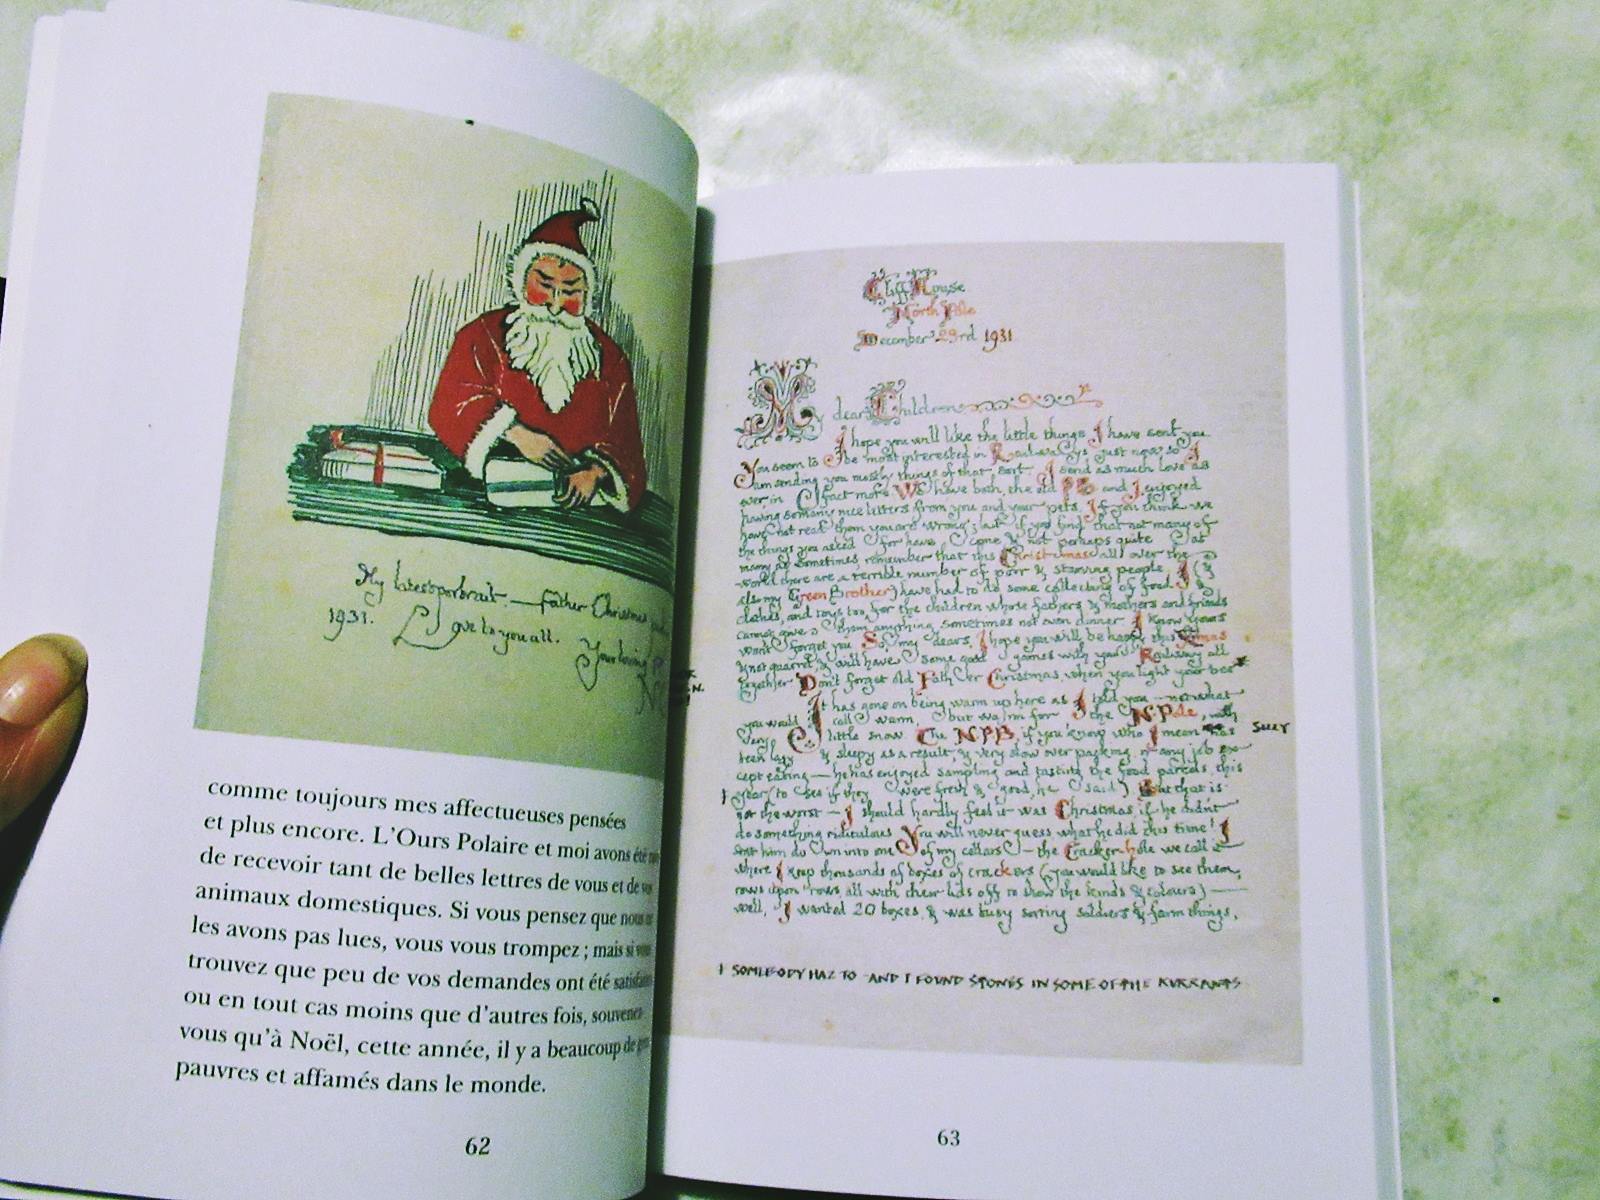 My latest portrait. — Father Christmas
1931. Love to you all.
Your loving
N
comme toujours mes affectueuses pensées
et plus encore. L'Ours Polaire et moi avons été
de recevoir tant de belles lettres de vous et de
animaux domestiques. Si vous pensez que nous
les avons pas lues, vous vous trompez ; mais si vous
trouvez que peu de vos demandes ont été
ou en tout cas moins que d'autres fois, souvenez-
vous qu'à Noël, cette année, il y a beaucoup de
pauvres et affamés dans le monde.
62
Cliff House
North Pole
December 23rd 1931
My dear Children
I hope you will like the little things I have sent you
You seem to be most interested in Railways just now, so I
am sending you mostly things of that sort. I send as much love as
ever in fact more. We have both, the old PB and I enjoyed
having so many nice letters from you and your pets. If you think we
have not read them you are wrong; but if you find that not many of
the things you asked for have come & not perhaps quite as
many as sometimes, remember that this Christmas all over the
world there are a terrible number of poor & starving people. I (&
also my Green Brother) have had to do some collecting of food &
clothes, and toys too, for the children whose fathers & mothers and friends
cannot give them anything, sometimes not even dinner. I know yours
won't forget you. So, my dears, I hope you will be happy this Xmas
& not quarrel, & will have some good games with your Railway all
together. Don't forget old Father Christmas, when you light your tree
It has gone on being warm up here as I told you — not what
you would call warm, but warm for the N. Pole, with
very little snow. The NPB, if you know who I mean has
been lazy & sleepy as a result, & very slow over packing, or any job ex-
cept eating — he has enjoyed sampling and tasting the food parcels this
year (to see if they were fresh & good, he said). But that is
not the worst — I should hardly feel it was Christmas if he didn't
do something ridiculous. You will never guess what he did this time! I
sent him down into one of my cellars — the Cracker-hole we call it —
where I keep thousands of boxes of crackers (you would like to see them,
rows upon rows, all with their lids off to show the kinds & colours) —
well, I wanted 20 boxes, & was busy sorting soldiers & farm things,
I SOMEBODY HAZ TO - AND I FOUND STONES IN SOME OF THE KURRANTS
63